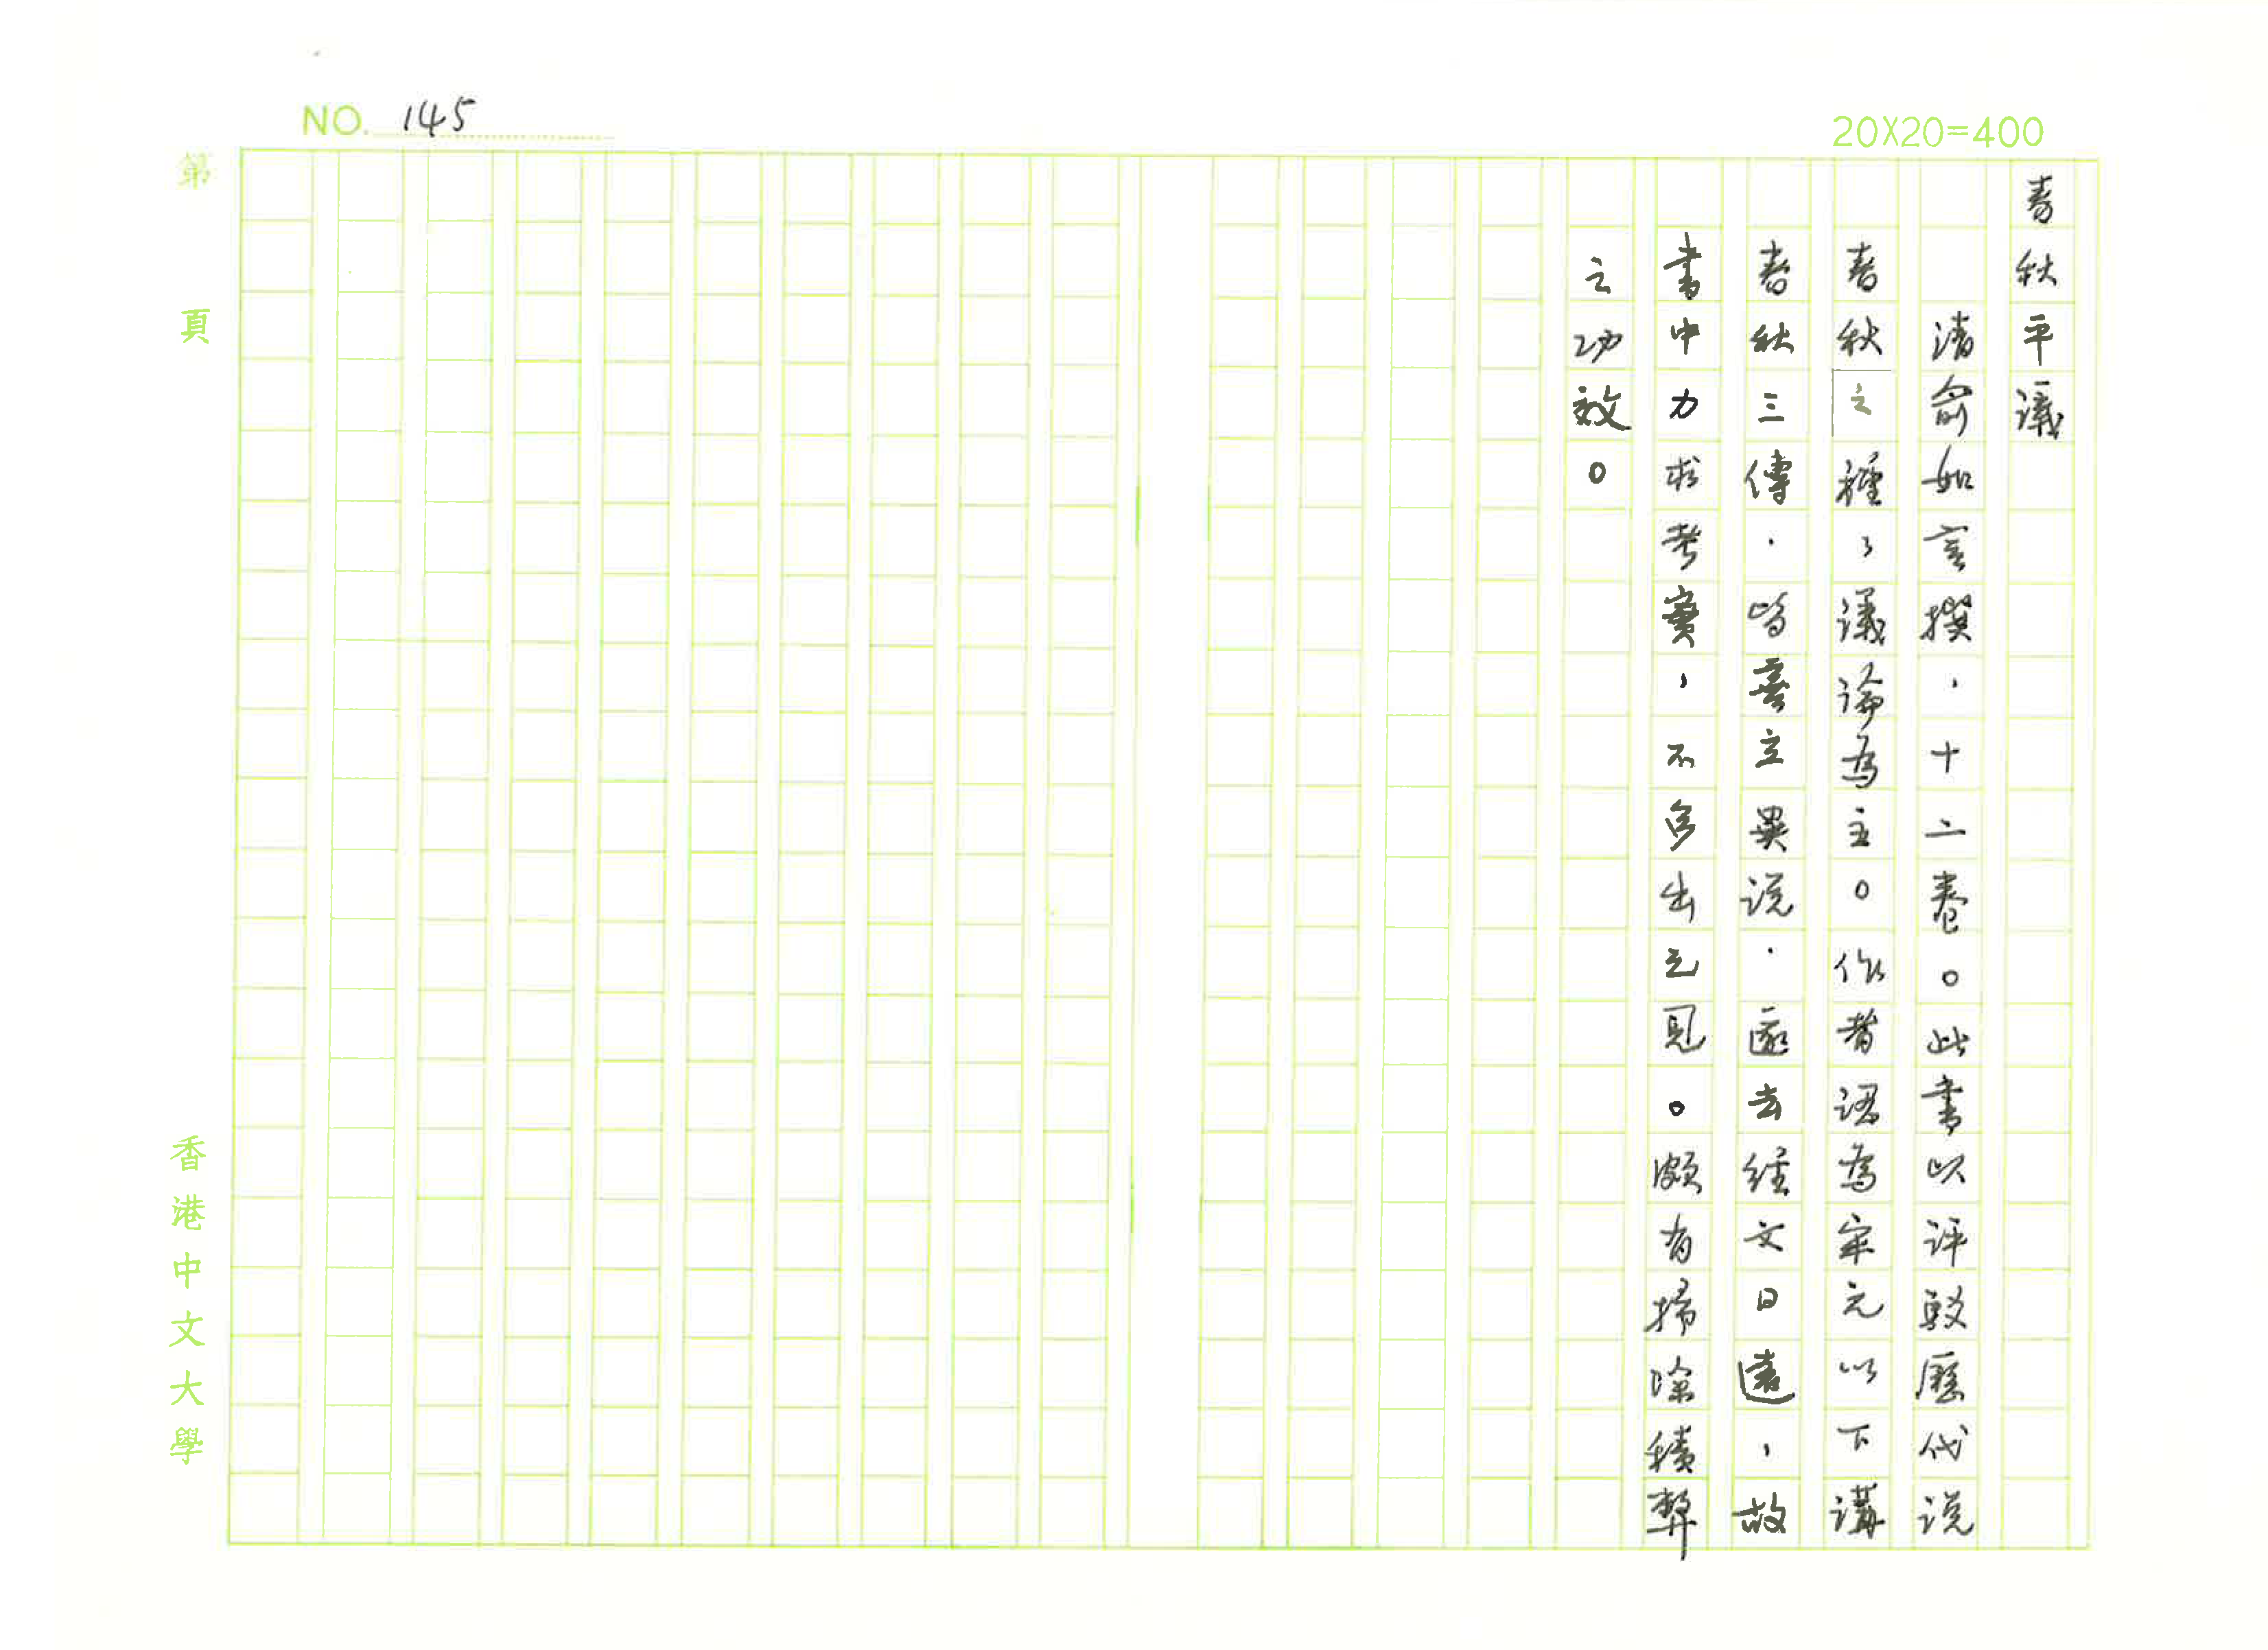 NO. 145
20X20=400
春秋平議
清俞如言撰，十二卷。此書以評駁歷代說
春秋之種々議論為主。作者認為宋元以下講
春秋三傳，皆喜立異說，遂去經文日遠，故
書中力求考實，不多出己見。頗有掃除積弊
之功效。
第 頁
香港中文大學